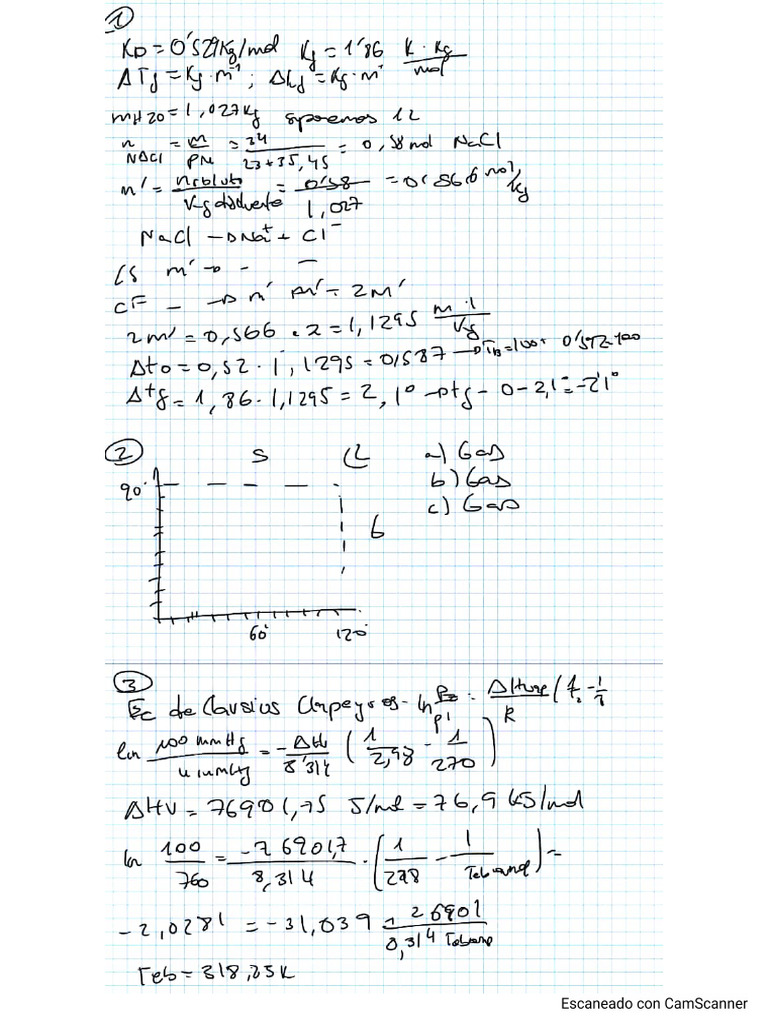 ①
KD = 0'529Kg/mol Kf = 1'86 K·Kg/mol
ΔTf = Kf·m'; Δkf = Kf·m'
mH2O = 1,027Kg 1L
n NaCl = m/PM = 34/23+35,45 = 0,58mol NaCl
m' = nsoluto/Kg disolvente = 0'58/1,027 = 0'566 mol/Kg
NaCl → Na⁺ + Cl⁻
CS m' → - -
CF - → m' m' = 2m'
2m' = 0,566 · 2 = 1,1295 mol/Kg
Δto = 0,52 · 1,1295 = 0'587 → TB = 100 +
Δtf = 1,86·1,1295 = 2,1° → tf = 0 - 2,1 = -2'1°
② S L a) Gas
90° b) Gas
c) Gas
G
60° 120°
③
Ec de Clausius Clapeyron ln P2/P1 = ΔHvap/R
ln 100 mmHg/41mmHg = -ΔHv/8'314 (1/2,98 - 1/270)
ΔHV = 76901,75 J/mol = 76,9 kJ/mol
ln 100/760 = -76901,7/8,314 · (1/278 - 1/Teb) =
-2,0281 = -31,039 26901/0,314
Teb = 318,25K
Escaneado con CamScanner